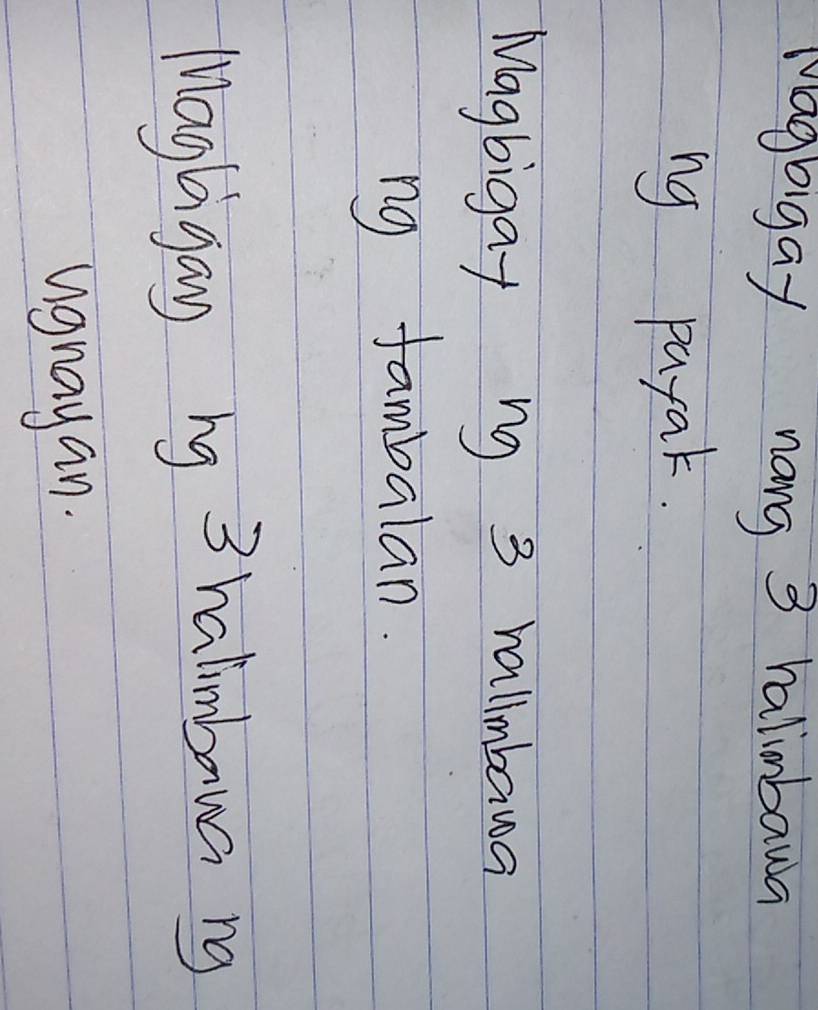 Magbigay nang 3 halimbawa
ng payak.
Magbigay ng 3 halimbawa
ng tambalan.
Magbigay ng 3 halimbawa ng
Ugnayan.